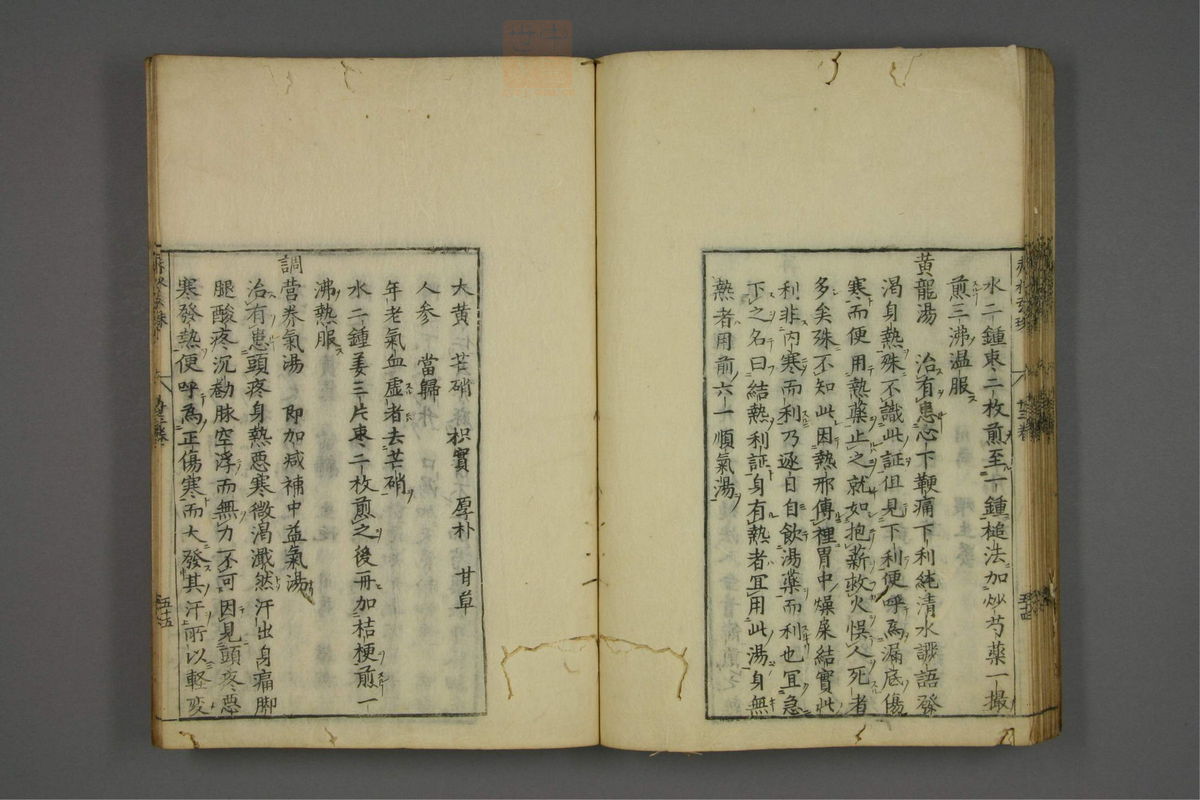 水二鍾枣二枚煎至一鍾槌法加炒芍藥一撮
煎三沸温服
黄龍湯　治有患心下鞕痛下利純清水譫語發
渴身熱殊不識此証但見下利便呼為漏底傷
寒而便用熱藥止之就如抱薪救火悞人死者
多矣殊不知此因熱邪傳裡胃中燥屎結實此
利非内寒而利乃逐日自飲湯藥而利也宜急
下之名曰結熱利証身有熱者宜用此湯身無
熱者用前六一順氣湯
大黄　芒硝　枳實　厚朴　甘草
人参　當歸
年老氣血虚者去芒硝
水二鍾姜三片枣二枚煎之後再加桔梗煎一
沸熱服
調营养氣湯　即加减補中益氣湯
治有患頭疼身熱惡寒微渴濈然汗出身痛脚
腿酸疼沉勌脉空浮而無力不可因見頭疼惡
寒發熱便呼為正傷寒而大發其汗所以軽変